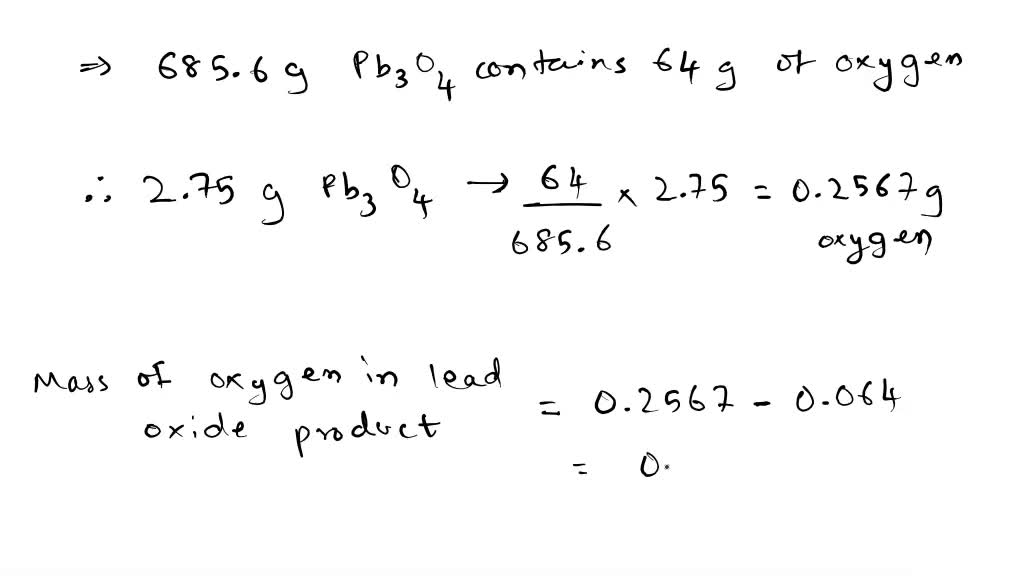 ⇒ 685.6 g Pb₃O₄ contains 64 g of oxygen
∴ 2.75 g Pb₃O₄ → 64/685.6 × 2.75 = 0.2567 g oxygen
Mass of oxygen in lead oxide product = 0.2567 - 0.064
= 0.